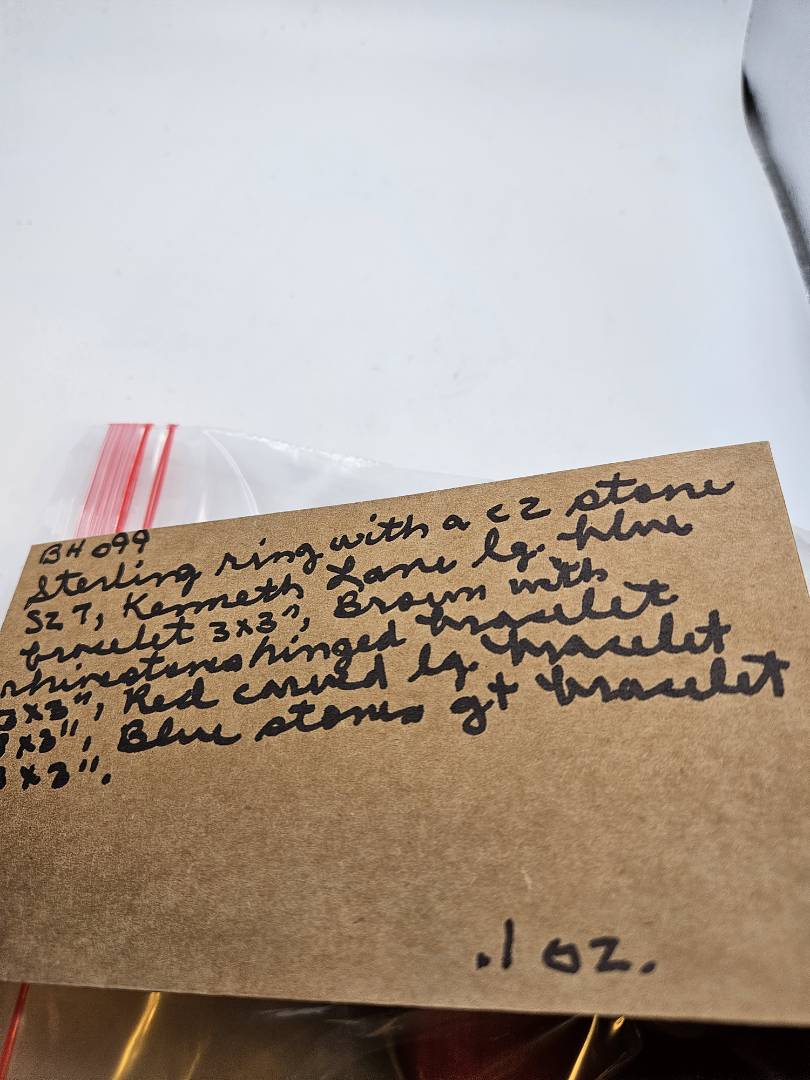 BH 099
Sterling ring with a cz stone
Sz 7, Kenneth Lane lg. blue
bracelet 3x3", Brown with
rhinestones hinged bracelet
3x3", Red carved lg. bracelet
3x3", Blue stones gt bracelet
3x3".
.1 oz.